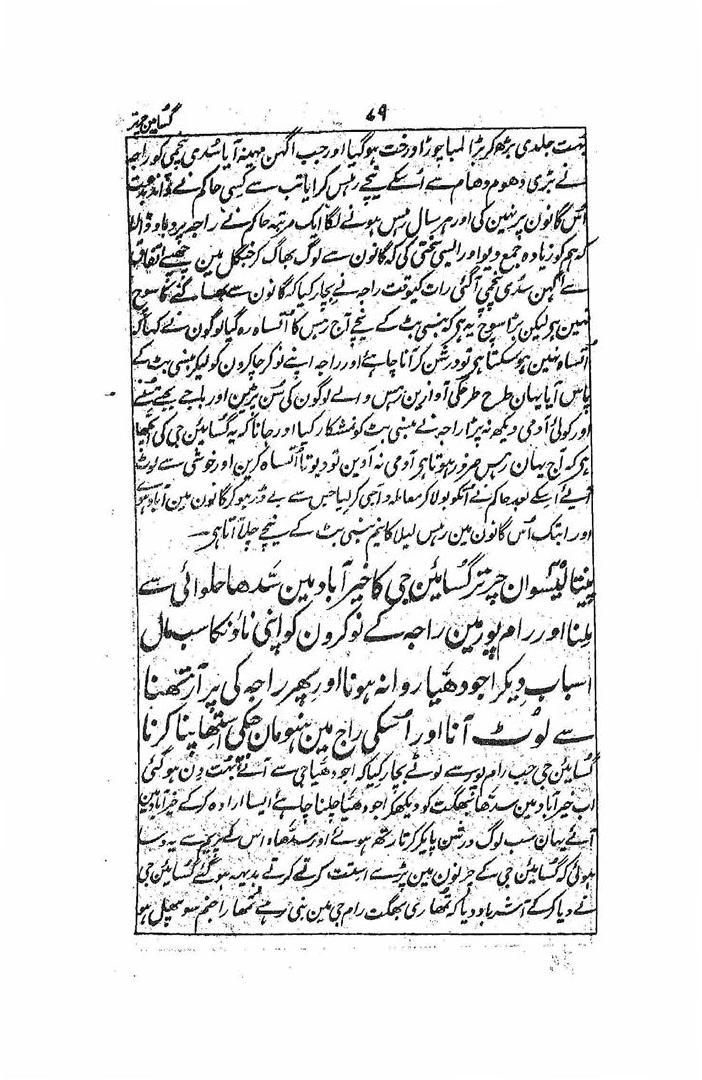 گسائین چرتر
۷۹
بہت جلدی بڑھکر بڑا لمبا چوڑا درخت ہوگیا اور جب اگہن مہینہ آیا سُدی پنچمی کو راجہ
نے بڑی دھوم دھام سے اُسکے نیچے رہس کرایا تب سے کسی حاکم نے
اُس گانون پر نہین کی اور ہر سال رہس ہونے لگا ایک مرتبہ حاکم نے راجہ پر دباو ڈالا
کہ ہمکو زیادہ جمع دیو اور ایسی سختی کی کہ گانون سے لوگ بھاگ کر جنگل مین چھپے اتفاق
سے اگہن سُدی پنچمی آگئی رات کیوقت راجہ نے بچار کیا کہ گانون سے بھاگنے کا سوچ
نہین ہے لیکن بڑا سوچ یہ ہی کہ بنسی بٹ کے نیچے آج رہس کا اُتساہ رہ گیا لوگون نے کہا کہ
اُتساہ نہین ہوسکتا ہی تو درشن کر آنا چاہئے اور راجہ اپنے نوکر چاکرون کو لیکر بنسی بٹ کے
پاس آیا یہان طرح طرحکی آوازین رہس والے لوگون کی سُن پڑین اور باجے بجے سُنے
اور کوئی آدمی دیکھ نہ پڑا راجہ نے بنسی بٹ کو نمشکار کیا اور جانا کہ یہ گسائین جی کی اچھا
ہی کہ آج یہان رہس ضرور ہوتا ہی آدمی نہ آوین تو دیوتا اُتساہ کرین اور خوشی سے لوٹ
آئے اُسکے بعد حاکم نے اُنکو بولا کر معاملہ واجبی کرلیا جس سے بے ڈر ہوکر گانون مین آباد ہوئے
اور ابتک اُس گانون مین رہس لیلا کا نیم بنسی بٹ کے نیچے چلا آتا ہی۔
پینتالیسوان چرتر گسائین جی کا خیرآباد مین سدھا حلوائی سے
ملنا اور رام پور مین راجہ کے نوکرون کو اپنی ناؤنکا سب مال
اسباب دیکر اجودھیا روانہ ہونا اور پھر راجہ کی پرارتھنا
سے لوٹ آنا اور اُسکی راج مین ہنومان جیکی استھاپنا کرنا
گسائین جی جب رام پور سے لوٹے بچار کیا کہ اجودھیا جی سے آئے بہت دن ہوگئی
اب خیرآباد مین سدھا بھگت کو دیکھکر اجودھیا چلنا چاہئے ایسا ارادہ کرکے خیرآباد مین
آئے یہان سب لوگ درشن پاکر کرتارتھ ہوئے اور سدھا اس کے پریم سے یہ دسا
ہوئی کہ گسائین جی کے چرنون مین پڑے استت کرتے کرتے بدیہہ ہوگئے گسائین جی
نے دیا کرکے آشرباد دیا کہ تمھاری بھگت رام جی مین بنی رہے تمھارا جنم سوپھل ہو